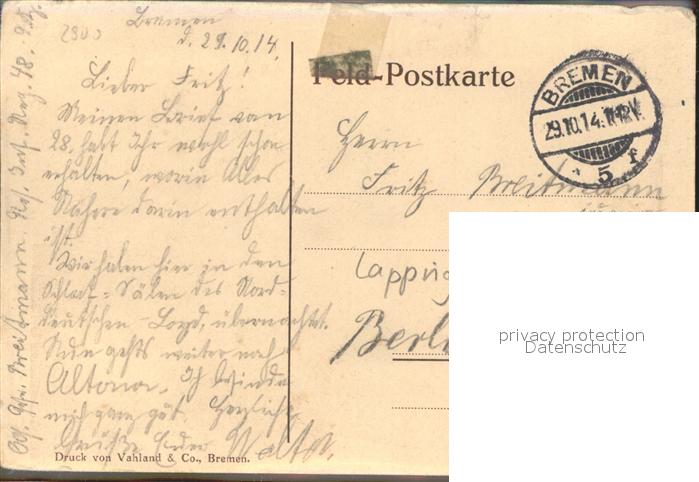 2900
Bremen
d. 29.10.14.
Lieber Fritz!
Meinen Brief vom
28. habt Ihr wohl schon
erhalten, worin alles
Nähere darin enthalten
ist.
Wir haben hier in den
Schlaf-Sälen des Nord-
deutschen-Loyd, übernachtet.
Nun gehts weiter nach
Altona. Ich befinde
mich ganz gut. Herzliche
Grüße Euer Walter.
Druck von Vahland & Co., Bremen.
Breitmann. Res. Inf. Reg. 48.
Feld-Postkarte
BREMEN
29.10.14.
* 5 f
Herrn
Fritz Breitmann
Berl
privacy protection
Datenschutz